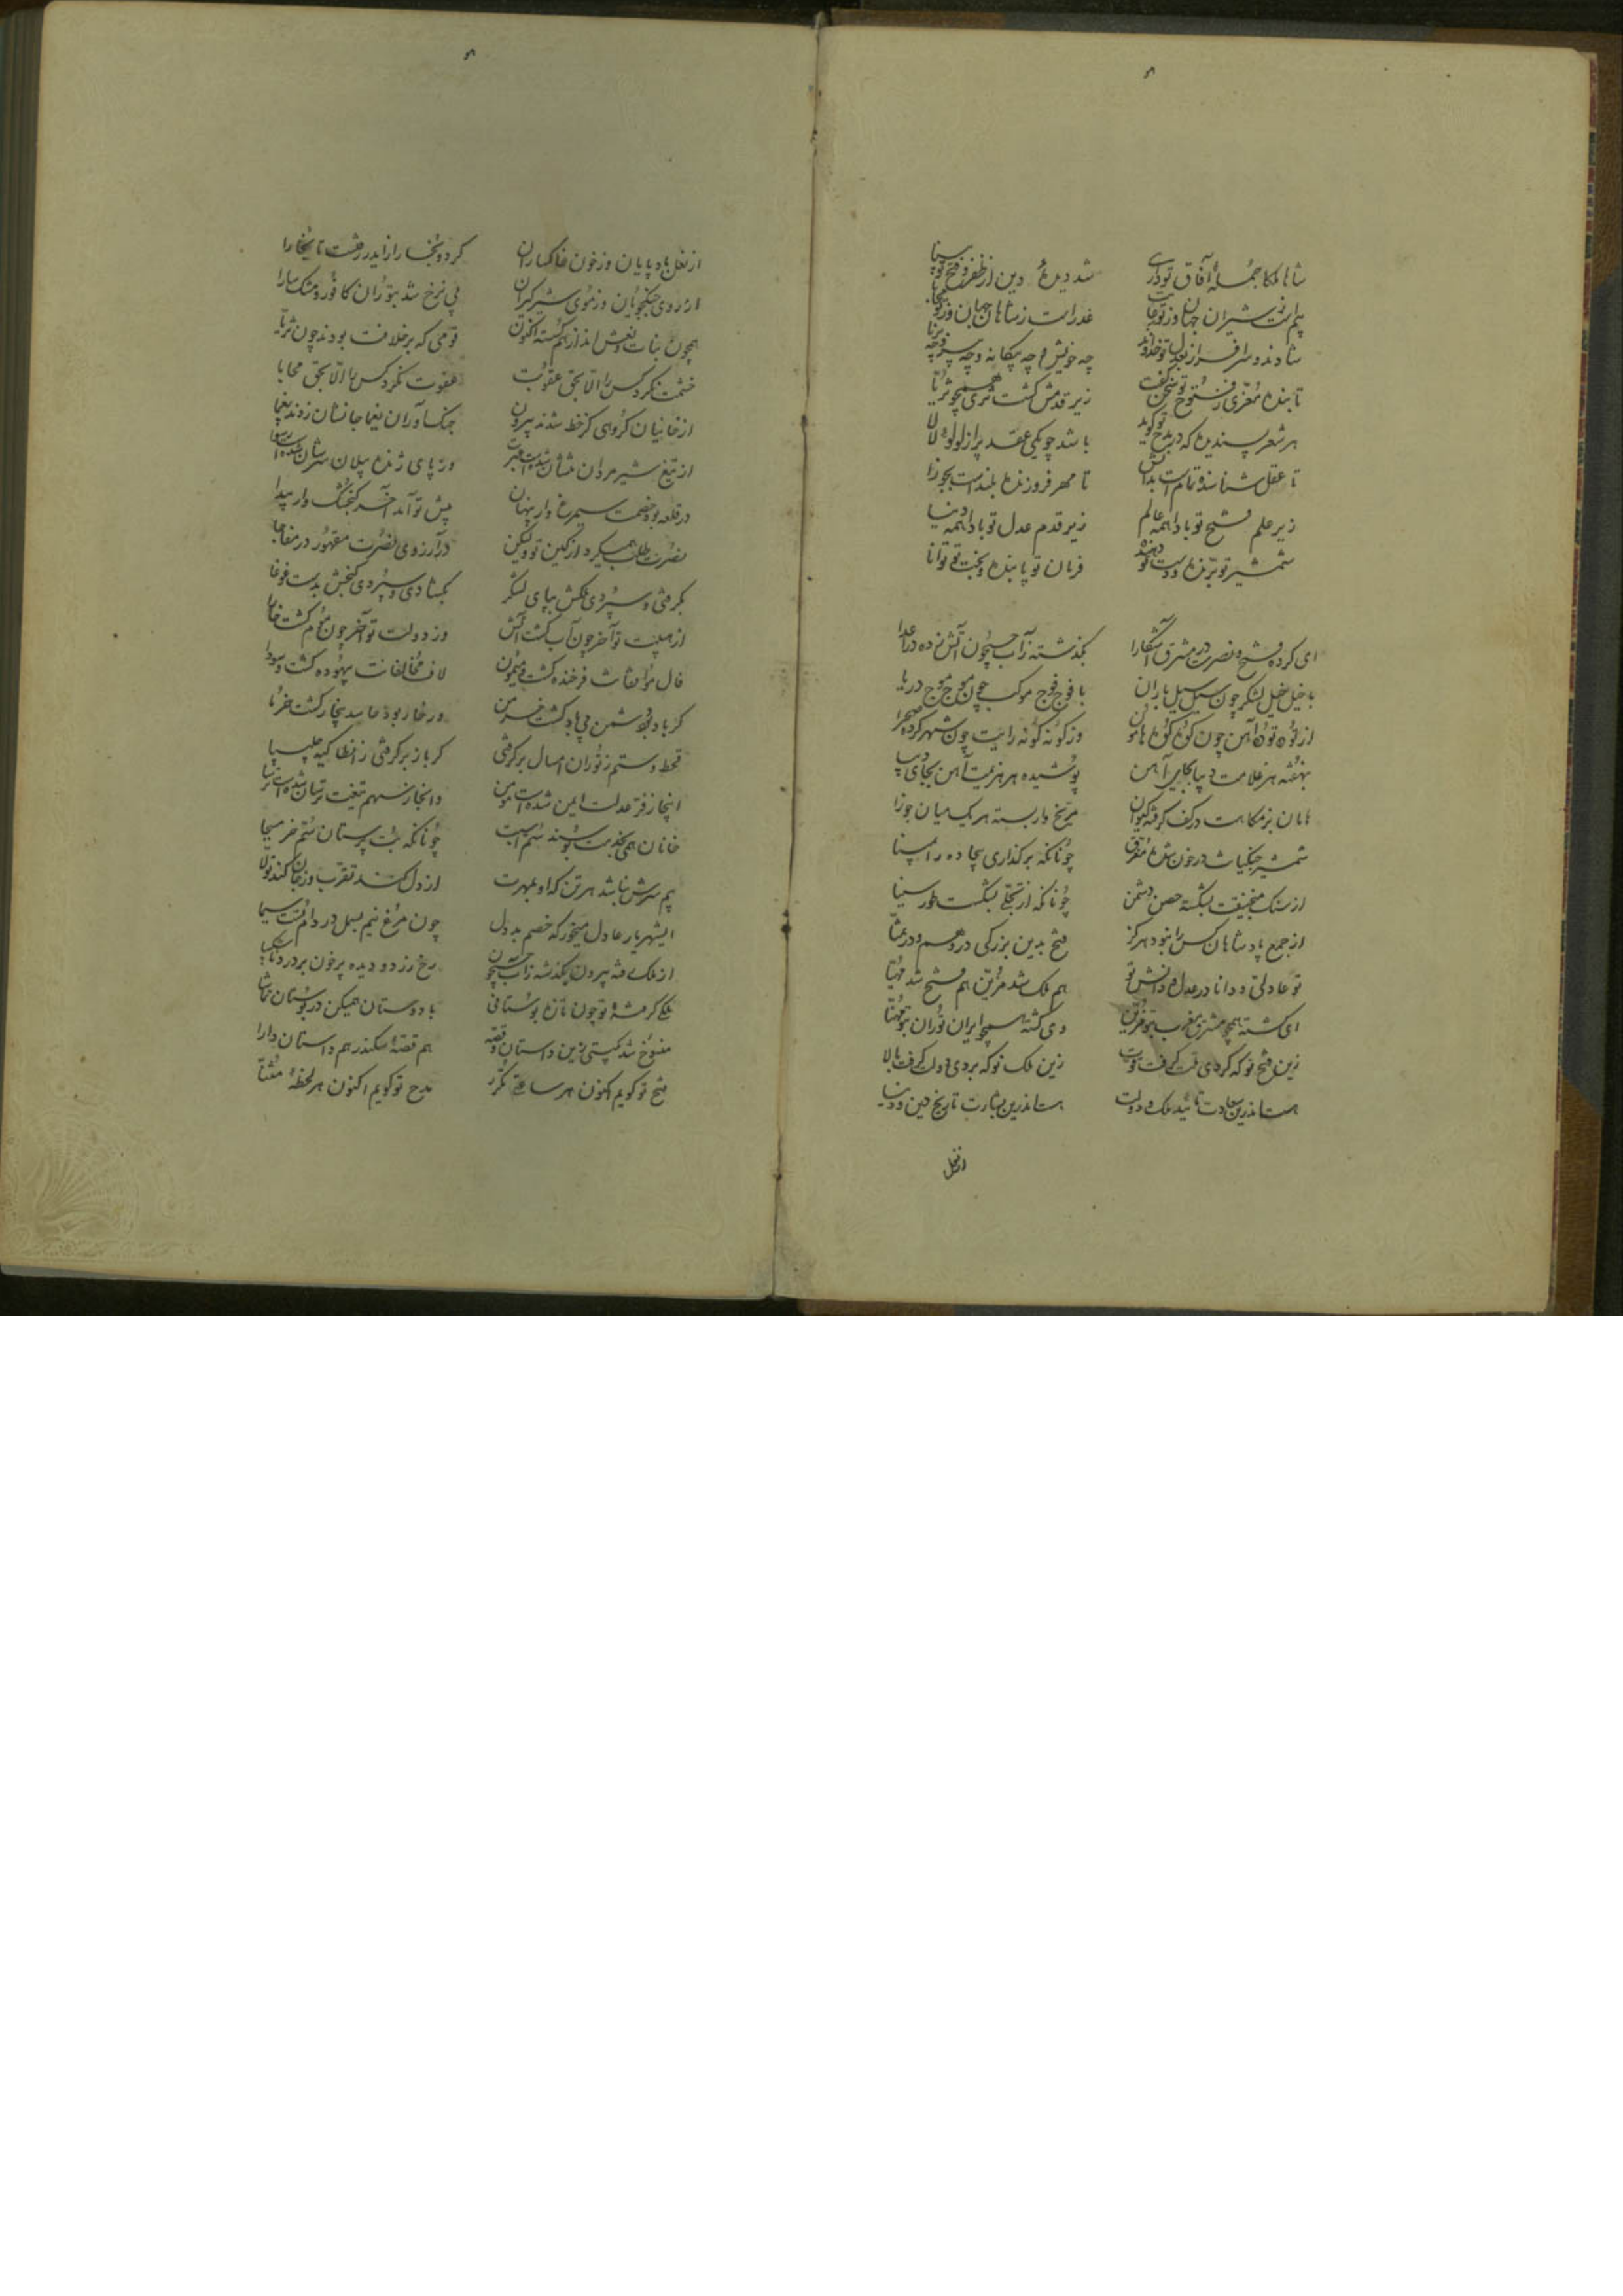 شاها ملکا جمله آفاق تو داری شد دیدهٔ دین از ظفر و فتح تو بینا
شادند و سرافراز بعدل تو خداوند چه خویش و چه بیگانه و چه پیر و چه برنا
تا بنده معزی ز فتوح تو سخن گفت زیر قدمش گشت ثری همچو ثریا
هر شعر پسندیده که در مدح تو گوید باشد چو یکی عقد پر از لولو لالا
تا عقل شناسنده تمام است بدانش تا مهر فروزنده بلند است بجوزا
زیر علم فتح تو بادا همه عالم زیر قدم عدل تو بادا همه دنیا
شمشیر تو برنده و دست تو دهنده فرمان تو پاینده و بخت تو توانا
ای کرده فتح و نصرت در مشرق آشکارا بگذشته زآب جیحون آتش زده در اعدا
با خیل خیل لشکر چون سیل سیل باران با فوج فوج موکب چون موج موج دریا
از توده توده آهن چون کوه کوه هامون وز گونه گونه رایت چون شهر کرده صحرا
بنهفته هر علامت دیبا بجای آهن پوشیده هر هزیمت آهن بجای دیبا
مریخ وار بسته هر یک میان جوزا
شمشیر جنگیانت در خون شده مغرق چونانکه برگذاری بیجاده را بمینا
از سنگ منجنیقت بشکسته حصن دشمن چونانکه از تجلی بشکست طور سینا
از جمع پادشاهان کس را نبود هرگز فتح بدین بزرگی در وهم و در تمنا
تو عادلی و دانا در عدل و دانش تو هم ملک شد مزین هم فتح شد مهیا
ای گشته همچو مشرق مغرب بتو مزین وی گشته همچو ایران توران بتو مهنا
زین فتح نو که کردی ملت گرفت قوت زین ملک نو که بردی دولت گرفت بالا
هست اندرین سعادت تائید ملک و دولت هست اندرین بشارت تاریخ دین و دنیا
از نعل
از نعل باد پایان وز خون خاکساران
از روی جنگجویان وز موی شیرگیران بی نرخ شد بتوران کافور و مشک سارا
همچون بنات نعش اند از هم گسسته اکنون قومی که بر خلافت بودند چون ثریا
خشمت نکرد کس را الا بحق عقوبت عفوت نکرد کس را الا بحق محابا
از خانیان گروهی کز خط شدند بیرون جنگ آوران یغما جانشان زدند یغما
از تیغ شیرمردان تنشان شده است بی سر وز پای ژنده پیلان سرشان شده است بی پا
در قلعه بود خصمت سیمرغ وار پنهان پیش تو آمد آخر گنجشک وار پیدا
نصرت طلب همیکرد از کین تو ولیکن در آرزوی نصرت مقهور شد مفاجا
بگرفتی و سپردی ملکش بپای لشکر بگشادی و سپردی گنجش بدست غوغا
از هیبت تو آخر چون آب گشت آتش وز دولت تو آخر چون موم گشت خارا
فال موافقانت فرخنده گشت و میمون لاف مخالفانت بیهوده گشت و سودا
گر باد بود دشمن بی باد گشت خرمن ور خار بود حاسد بیخار گشت خرما
قحط و ستم ز توران امسال برگرفتی گر باز برگرفتی ز انطاکیه چلیپا
اینجا ز فر عدلت ایمن شده است مومن وانجا ز سهم تیغت ترسان شده است ترسا
خانان همی بخدمت بوسند سم اسبت چونانکه بت پرستان سم خر مسیحا
بیم سرش نباشد هر تن که او بمهرت از دل کند تقرب وز جان کند تولا
ای شهریار عادل می خور که خصم بد دل چون مرغ نیم بسمل در دام تست شیدا
از ملک فتنه بیرون بگذشته زآب جیحون رخ زرد و دیده پر خون پر درد و ناشکیبا
ملکی گرفتهٔ تو چون تازه بوستانی با دوستان همیکن در بوستان تماشا
منسوخ شد بگیتی زین داستان و قصه هم قصهٔ سکندر هم داستان دارا
فتح تو گویم اکنون هر ساعتی مکرر مدح تو گویم اکنون هر لحظهٔ مثنا